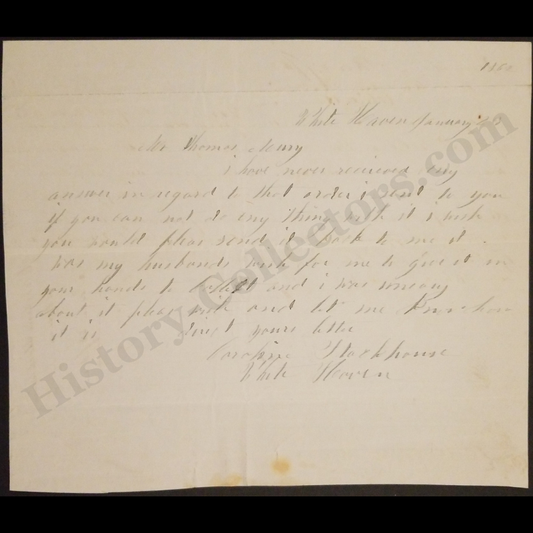 White Haven January
Mr Thomas
i have never received any
answer in regard to that order i sent to you
if you can not do any thing with it i wish
you would pleas send it back to me it
was my husbands wish for me to give it in
your hands to and i was
about it pleas and let me how
it is Direct yours
Caroline Stockhouse
White Haven
History-Collectors.com